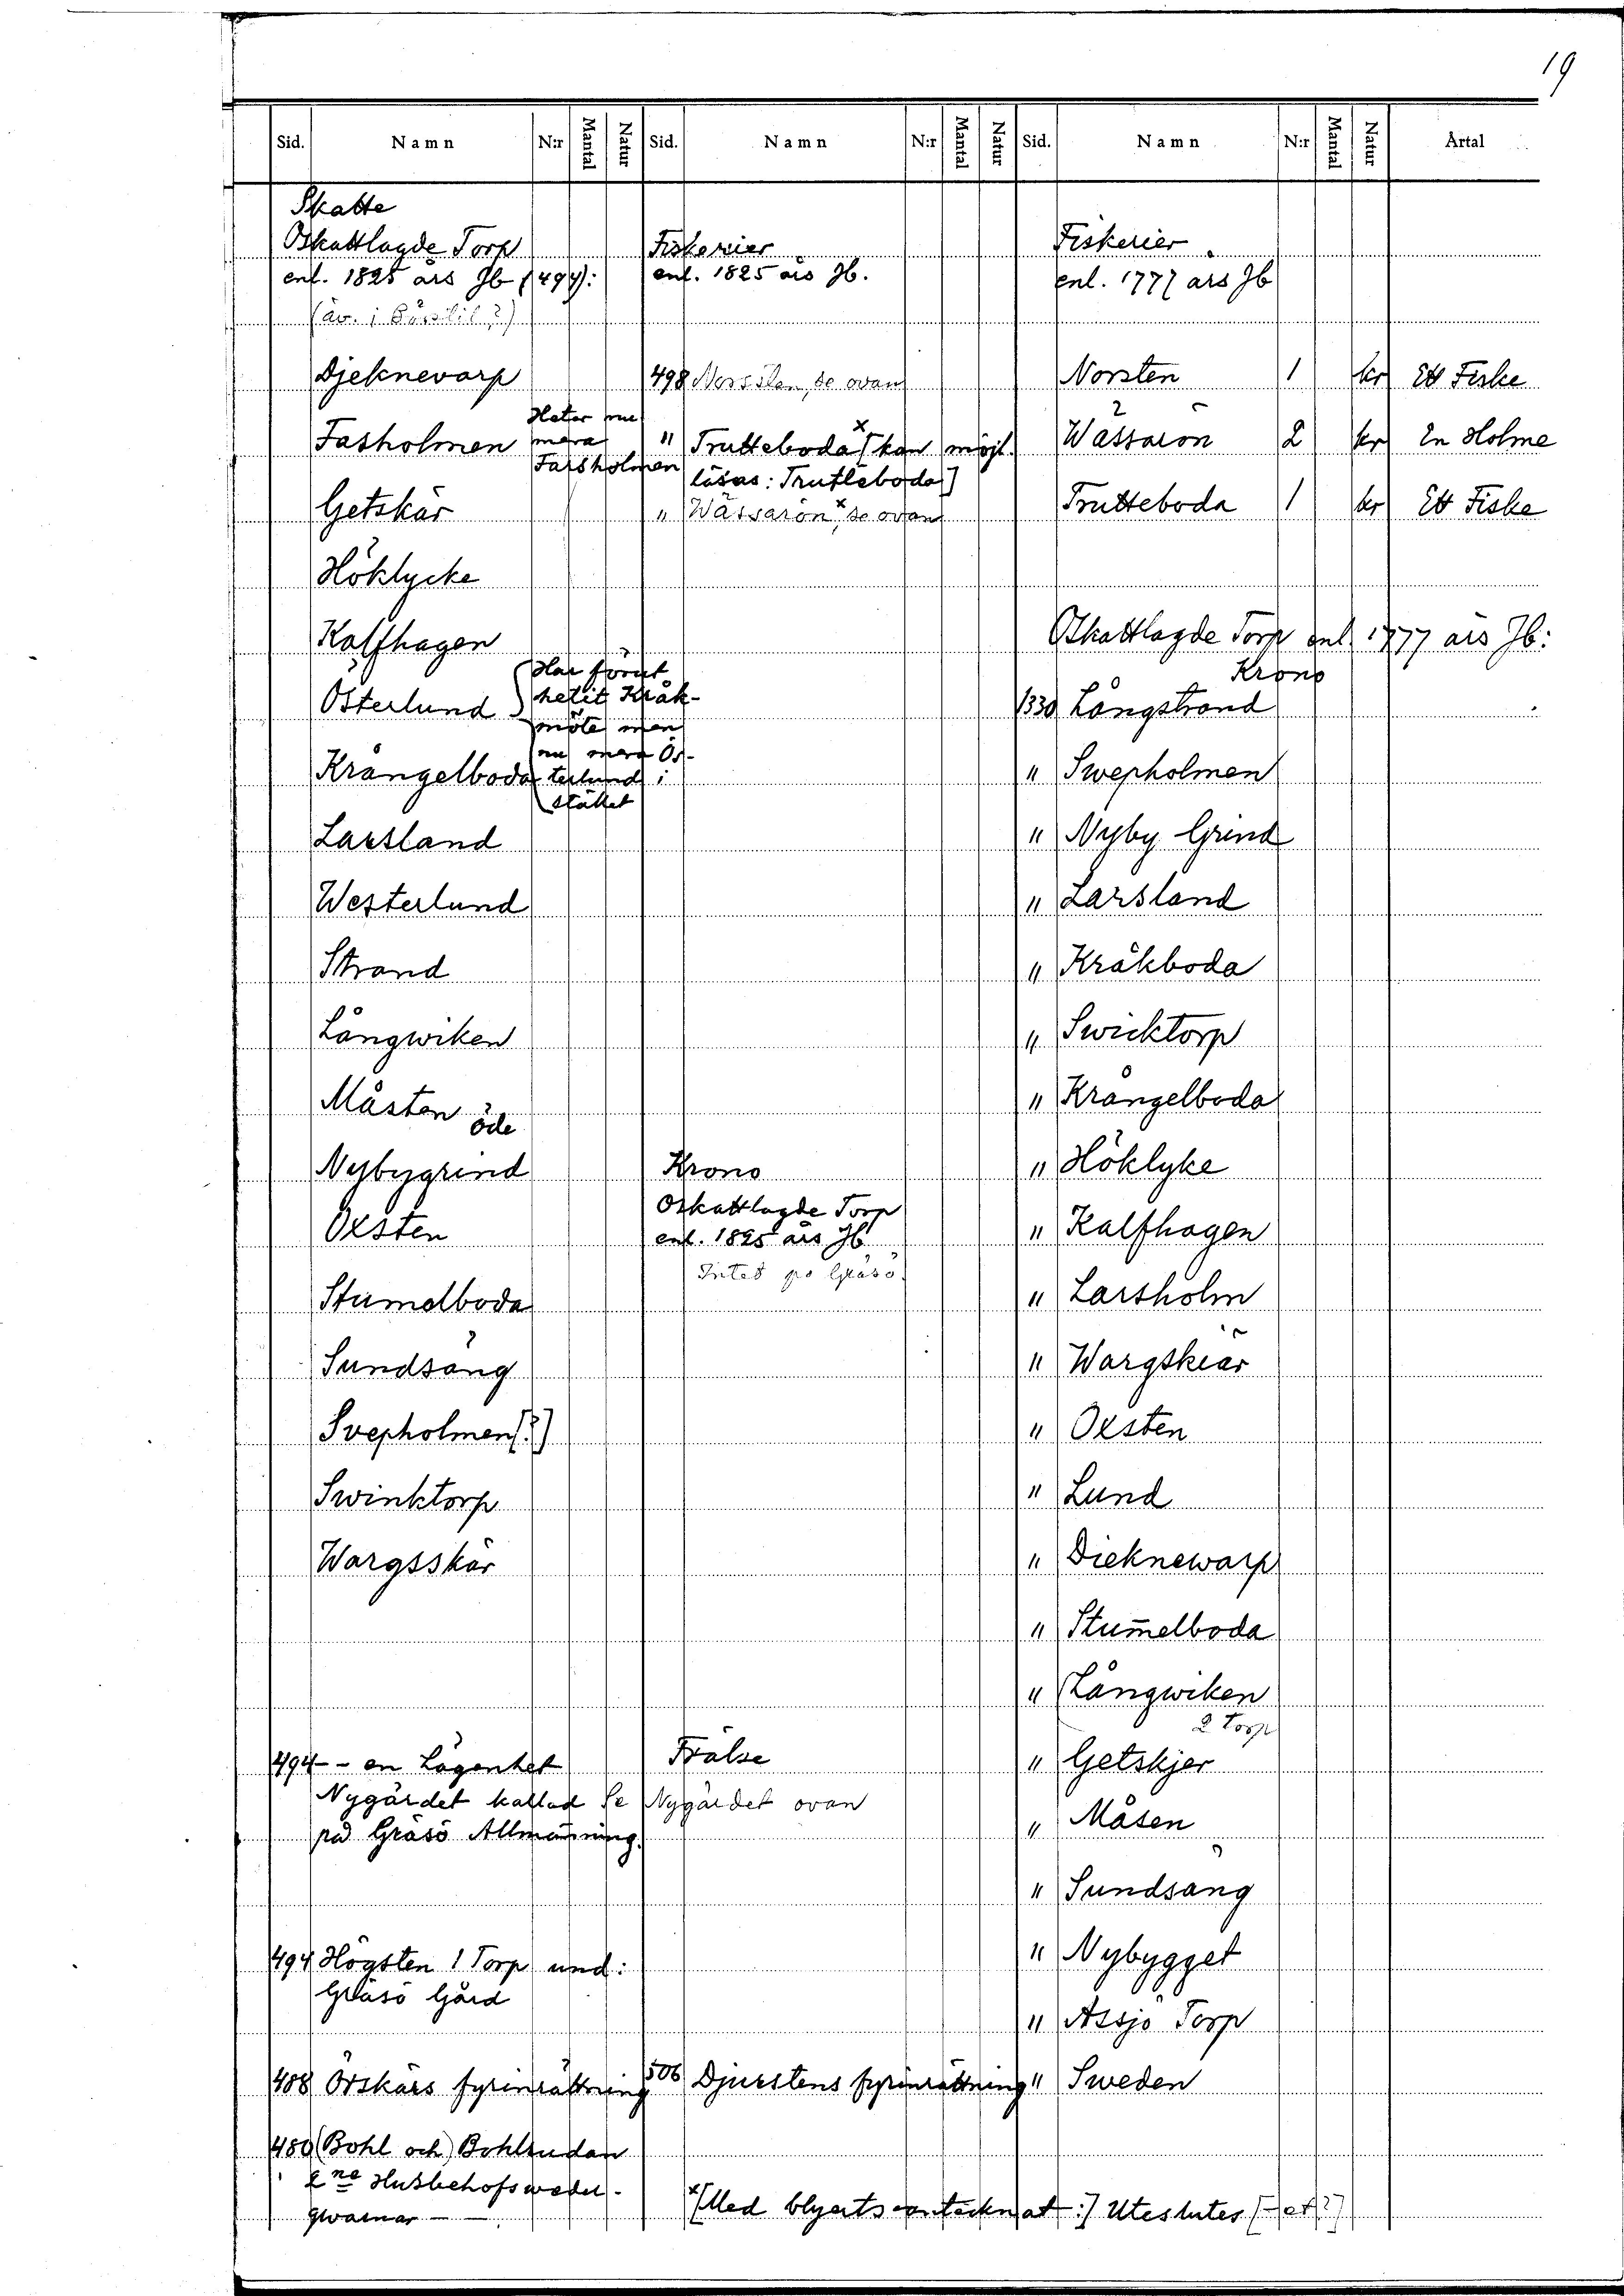 19
Sid. Namn N:r Mantal Natur Sid. Namn N:r Mantal Natur Sid. Namn N:r Mantal Natur Årtal
Skatte
Oskattlagde Torp
enl. 1825 års Jb (494):
(äv. i
Djeknevarp
Fasholmen
Heter nu
mera
Farsholmen
Getskär
Höklycke
Kalfhagen
Österlund
(Har förut
hetit Kråk-
möte men
nu mera Ös-
terlund i
stället
Krångelboda
Larsland
Westerlund
Strand
Långwiken
Måsten öde
Nybygrind
Oxsten
Stumelboda
Sundsäng
Svepholmen [?]
Swinktorp
Wargsskär
494 -- en Lägenhet
Nygärdet kallad Se Nygärdet ovan
på Gräsö Allmänning.
494 Högsten 1 Torp und:
Gräsö Gård
488 Örskärs fyrinrättning
480 (Bohl och) Bohlsudan
2ne Husbehofs weder-
qwarnar —
Fiskerier
enl. 1825 års Jb.
498 Norsten, se ovan
" Trutteboda x [kan möjl.
läsas: Trutleboda]
" Wässarön x, se ovan
Krono
Oskattlagde Torp
enl. 1825 års Jb
Intet på Gräsö.
Frälse
506 Djurstens fyrinrättning
x [Med blyerts antecknat:] Uteslutes [-et?]
Fiskerier
enl. 1777 års Jb
Norsten 1 kr Ett Fiske
Wässarön 2 kr En Holme
Trutteboda 1 kr Ett Fiske
Oskattlagde Torp enl. 1777 års Jb:
Krono
1330 Långstrand
" Swepholmen
" Nyby Grind
" Larsland
" Kråkboda
" Swicktorp
" Krångelboda
" Höklyke
" Kalfhagen
" Larsholm
" Wargskiär
" Oxsten
" Lund
" Dieknewarp
" Stum̄elboda
" Långwiken
2 Torp
" Getskjer
" Måsen
" Sundsäng
" Nybygget
" Assjö Torp
" Sweden